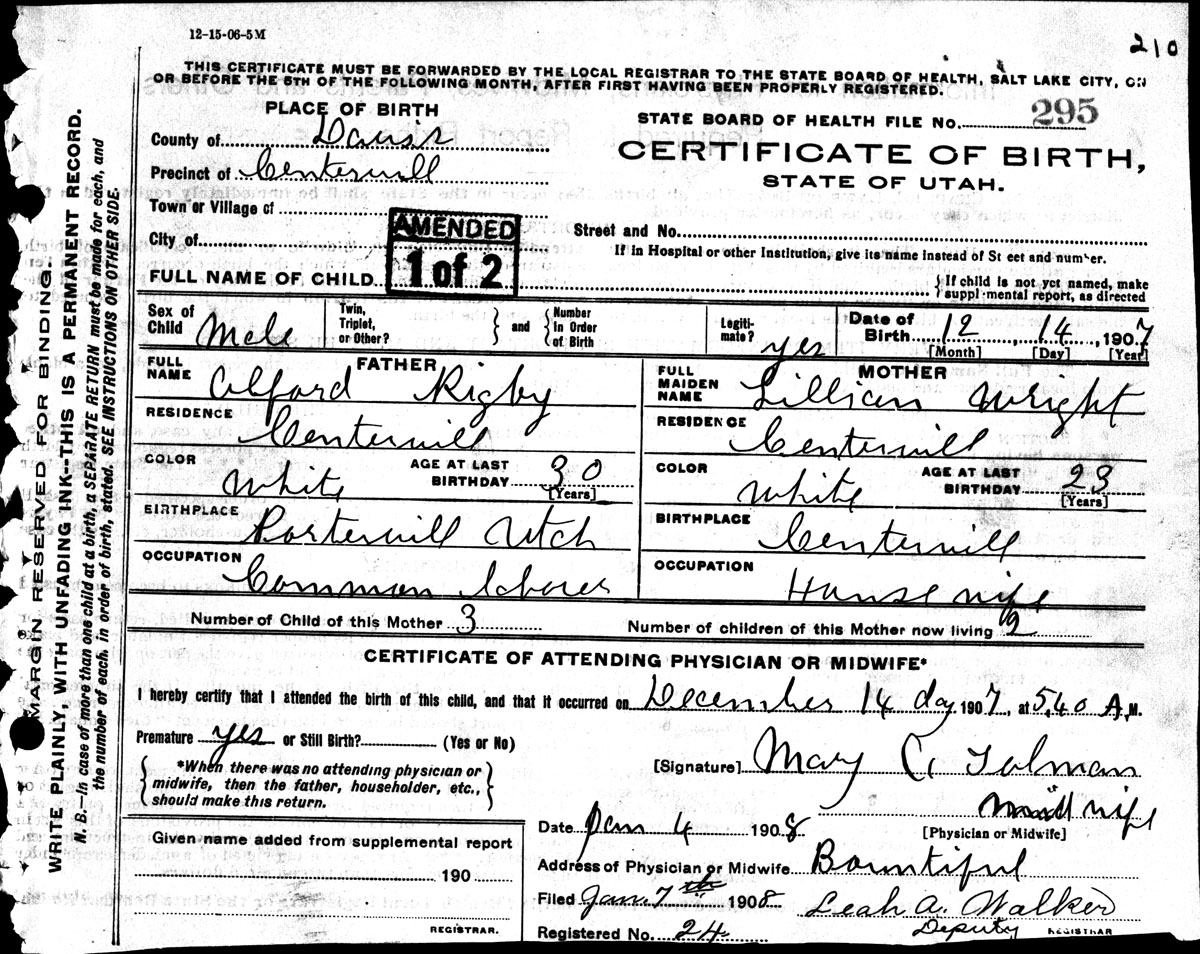 12-15-06-5M
210
THIS CERTIFICATE MUST BE FORWARDED BY THE LOCAL REGISTRAR TO THE STATE BOARD OF HEALTH, SALT LAKE CITY, ON
OR BEFORE THE 5TH OF THE FOLLOWING MONTH, AFTER FIRST HAVING BEEN PROPERLY REGISTERED.
PLACE OF BIRTH
STATE BOARD OF HEALTH FILE No. 295
County of Davis
CERTIFICATE OF BIRTH,
STATE OF UTAH.
Precinct of Centervill
Town or Village of
AMENDED
1 of 2
Street and No.
City of
If in Hospital or other Institution, give its name instead of St eet and number.
FULL NAME OF CHILD
If child is not yet named, make
suppl·mental report, as directed
Sex of Child Male
Twin, Triplet, or Other?
and
Number In Order of Birth
Legiti-mate? yes
Date of Birth 12, 14, 1907
[Month] [Day] [Year]
FATHER
FULL NAME Alford Rigby
RESIDENCE Centervill
COLOR White
AGE AT LAST BIRTHDAY 30
[Years]
BIRTHPLACE Portervill Utah
OCCUPATION Common Laborer
MOTHER
FULL MAIDEN NAME Lillian Wright
RESIDENCE Centervill
COLOR White
AGE AT LAST BIRTHDAY 23
[Years]
BIRTHPLACE Centervill
OCCUPATION House wife
Number of Child of this Mother 3
Number of children of this Mother now living 2
CERTIFICATE OF ATTENDING PHYSICIAN OR MIDWIFE*
I hereby certify that I attended the birth of this child, and that it occurred on December 14 day 1907, at 5,40 A.M.
Premature yes or Still Birth? (Yes or No)
*When there was no attending physician or
midwife, then the father, householder, etc.,
should make this return.
[Signature] Mary C. Tolman
wife
[Physician or Midwife]
Date Jan 4 1908
Given name added from supplemental report
190
REGISTRAR.
Address of Physician or Midwife Bountiful
Filed Jan. 7th 1908 Leah A. Walker
Registered No. 24 Deputy REGISTRAR
MARGIN RESERVED FOR BINDING.
WRITE PLAINLY, WITH UNFADING INK--THIS IS A PERMANENT RECORD.
N. B.—In case of more than one child at a birth, a SEPARATE RETURN must be made for each, and
the number of each, in order of birth, stated. SEE INSTRUCTIONS ON OTHER SIDE.